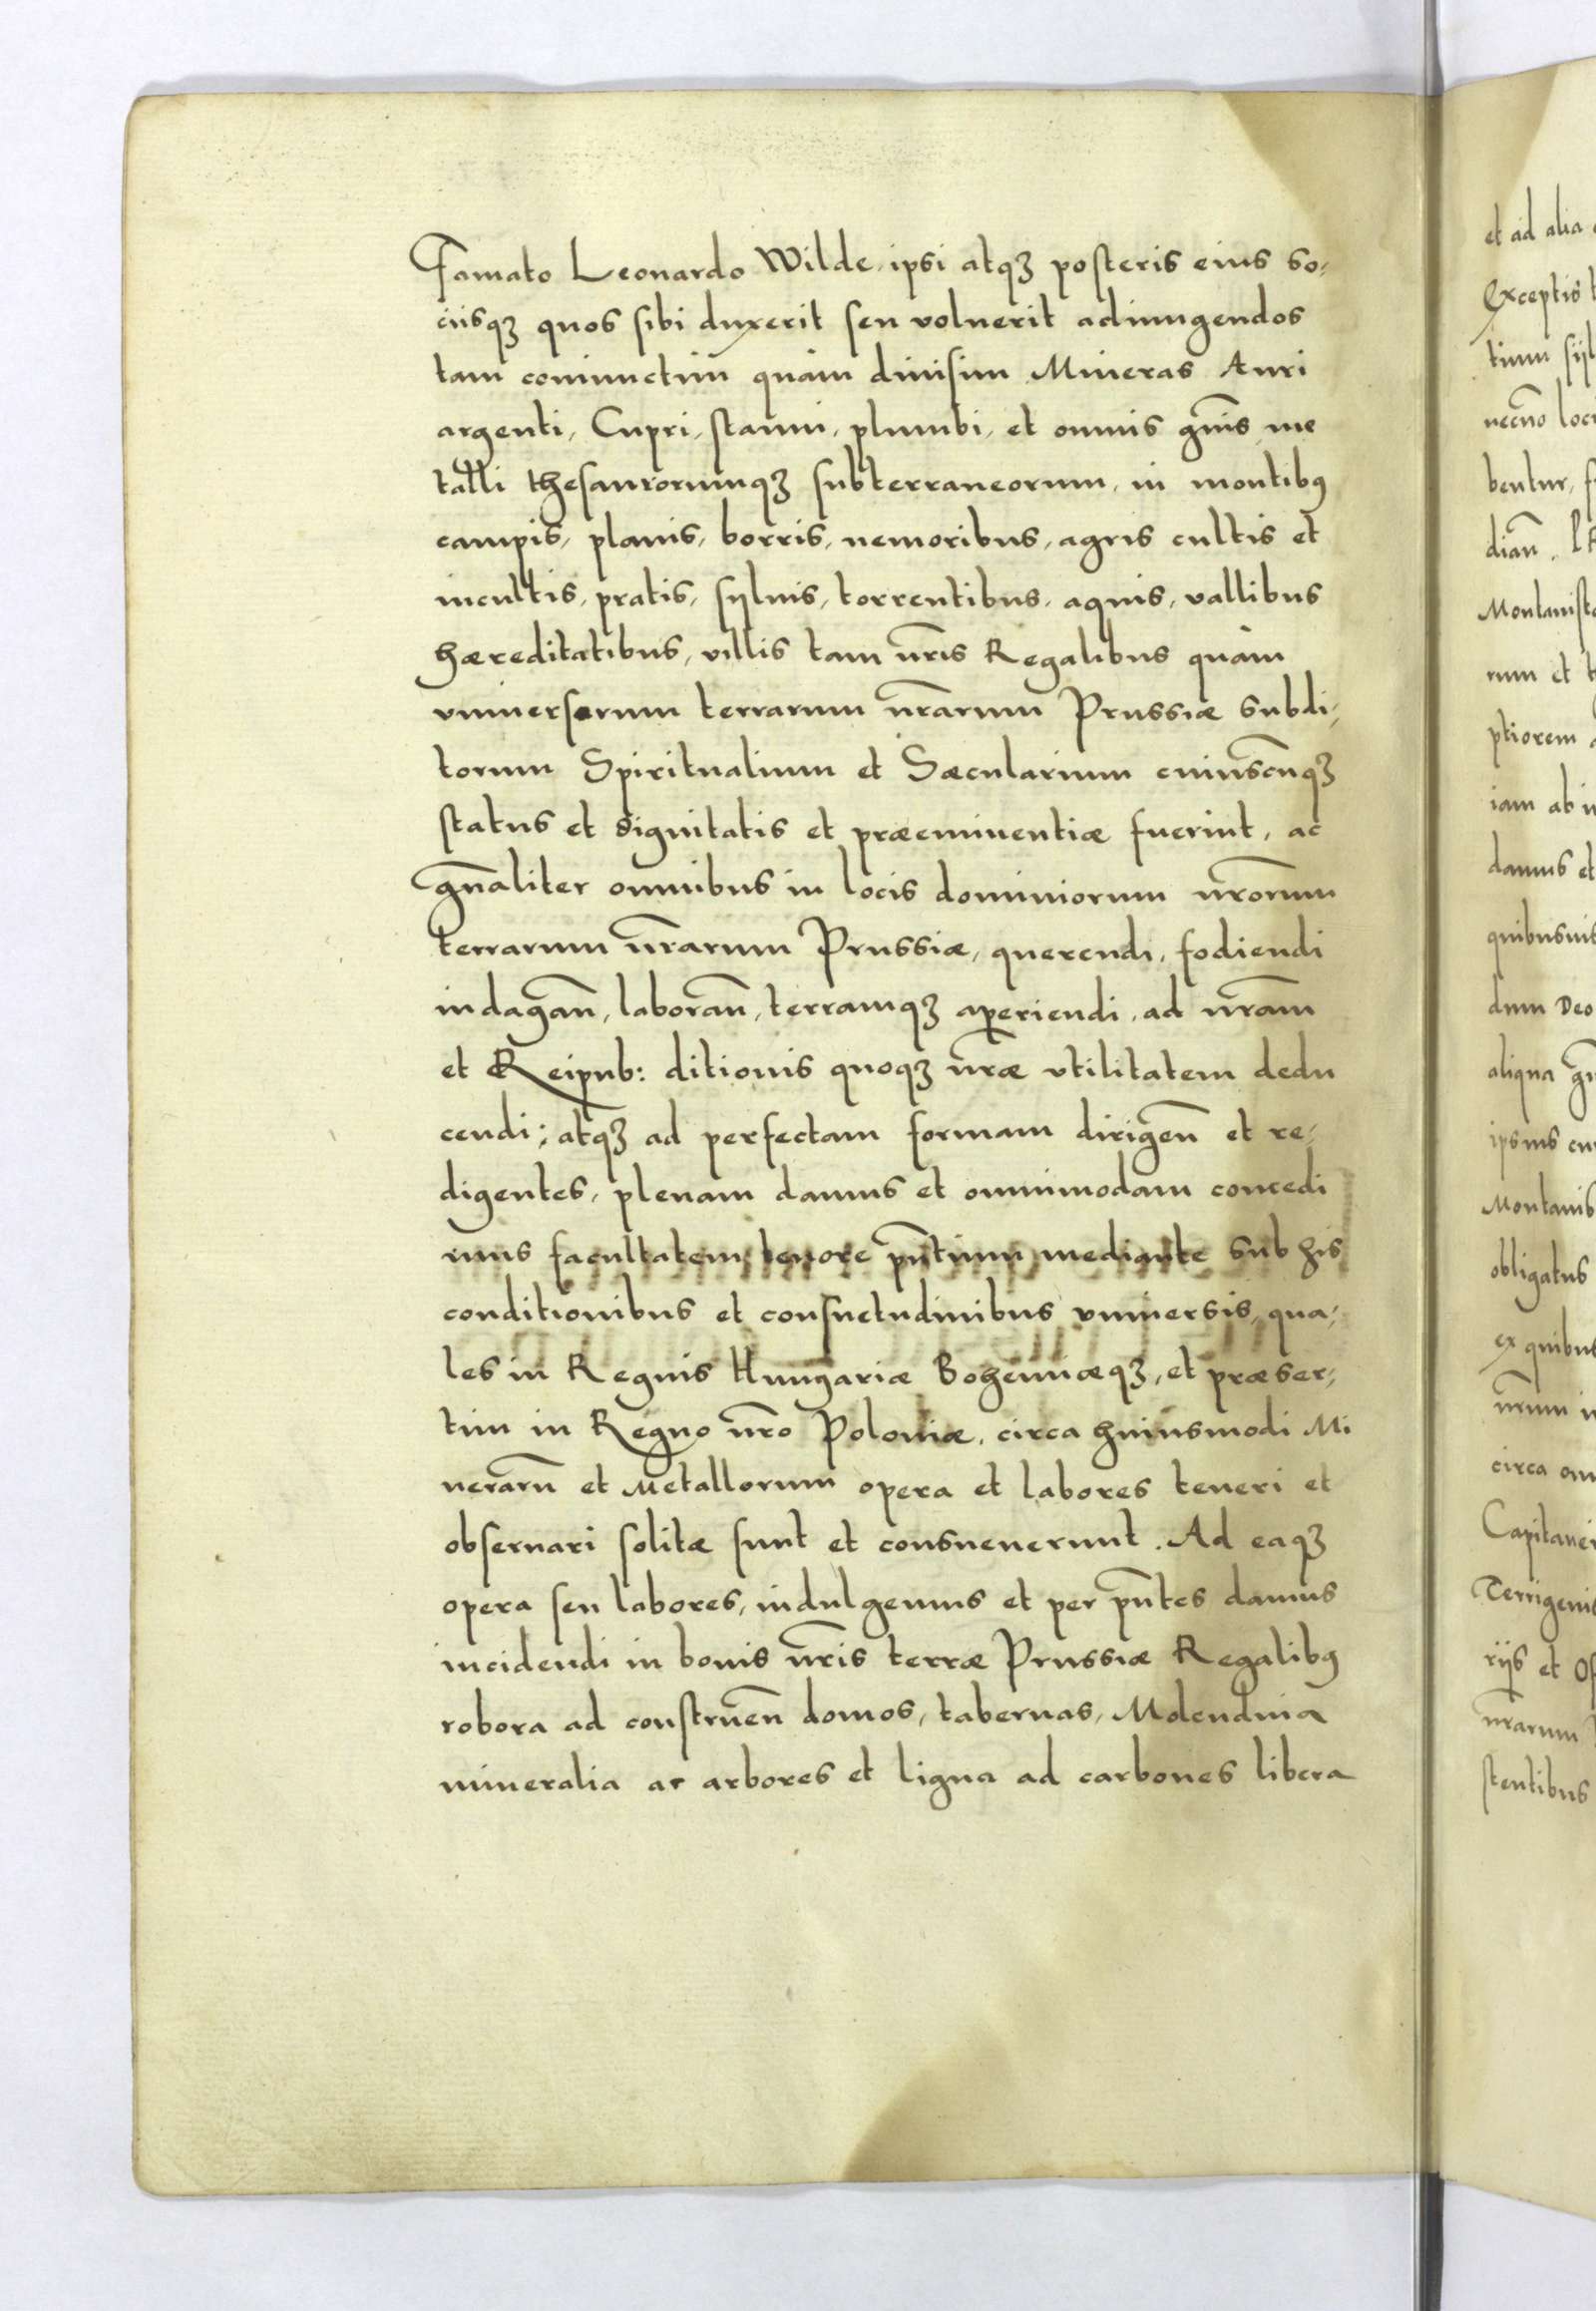 Famato Leonardo Wilde, ipsi atqꝫ posteris eius so-
ciisqꝫ quos sibi duxerit seu voluerit adiungendos
tam coniunctim quàm diuisim Mineras Auri
argenti, Cupri, stanni, plumbi, et omnis gn̄is me
talli thesaurorumqꝫ subterraneorum, in montibꝰ
campis, planis, borris, nemoribus, agris cultis et
incultis, pratis, syluis, torrentibus, aquis, vallibus
hæreditatibus, villis tam nr̄is Regalibus quàm
vniuersorum terrarum nr̄arum Prussiæ subdi-
torum Spiritualium et Sæcularium cuiuscunqꝫ
status et dignitatis et præeminentiæ fuerint, ac
gn̄aliter omnibus in locis dominiorum nr̄orum
terrarum nr̄arum Prussiæ, querendi, fodiendi
indagan̄, laboran̄, terramqꝫ aperiendi, ad nr̄am
et Reipub: ditionis quoqꝫ nr̄æ vtilitatem dedu
cendi; atqꝫ ad perfectam formam dirigen̄ et re-
digentes, plenam damus et omnimodam concedi
mus facultatem, tenore pn̄tium mediante sub his
conditionibus et consuetudinibus vniuersis, qua-
les in Regnis Hungariæ Bohemiæqꝫ, et præser-
tim in Regno nr̄o Poloniæ, circa huiusmodi Mi
nerarū et Metallorum opera et labores teneri et
obseruari solitæ sunt et consueuerunt. Ad eaqꝫ
opera seu labores, indulgemus et per pn̄tes damus
incidendi in bonis nr̄is terræ Prussiæ Regalibꝰ
robora ad construen̄ domos, tabernas, Molendina
mineralia ac arbores et ligna ad carbones libera
et ad alia
Exceptis
tium
necno loc
bentur,
dian̄.
Montanist
rum et
ptiorem
iam ab
damus et
quibusuis
dum Deo
aliqua
ipsius
Montanis
obligatus
ex quibus
nr̄um
circa om
Capitanei
Terrigenis
rijs et Of
nr̄arum
stentibus